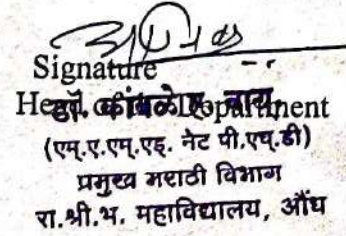 Signature
Head of the Department
डॉ. कांबळे
(एम.ए.एम.एड. नेट पी.एच.डी)
प्रमुख मराठी विभाग
रा.श्री.भ. महाविद्यालय, औंध